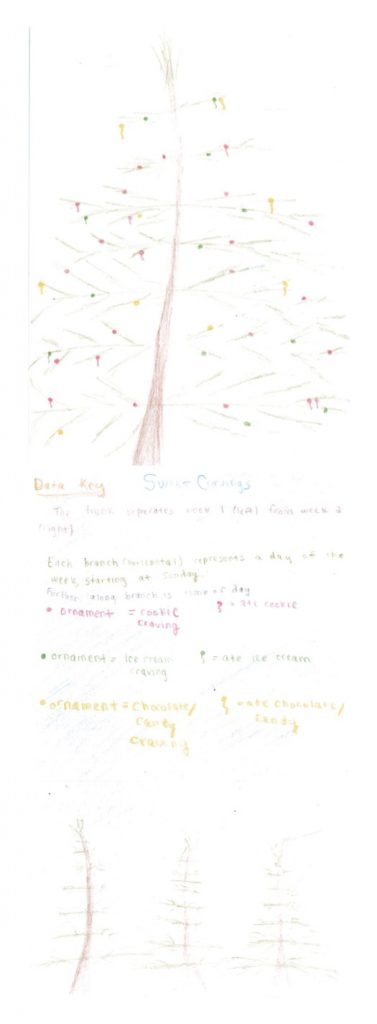 Data Key Sweet Cravings
The trunk seperates week 1 (left) from week 2
(right)
Each branch (horizontal) represents a day of the
week, starting at sunday.
Further along branch is time of day
• ornament = cookie craving
= ate cookie
• ornament = Ice cream craving
= ate ice cream
• ornament = Chocolate/ candy craving
= ate chocolate/ candy